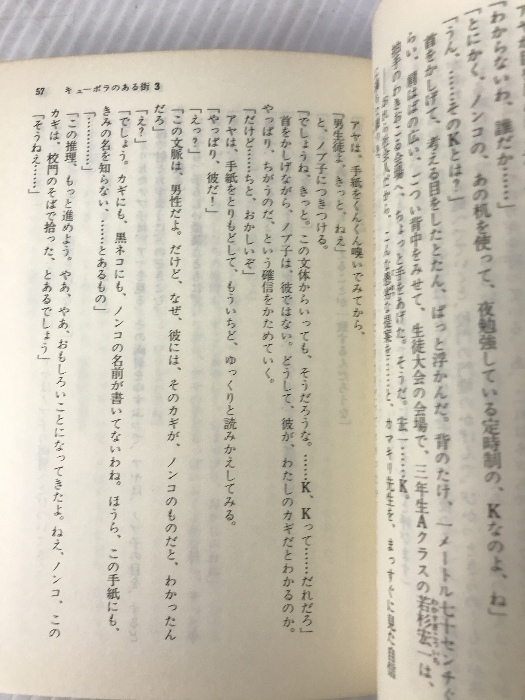 「わからないわ、誰だか……」
「とにかく、ノンコの、あの机を使って、夜勉強している定時制の、Kなのよ、ね」
「うん、……そのKとは？」
首をかしげて、考える目をしたとたん、ぱっと浮かんだ。背のたけ、一メートル七十センチ
らい、肩はばの広い、ごつい背中をみせて、生徒大会の会場で、三年生Aクラスの若杉宏一は、
拍手のわきおこる会場へ、ちょっと手をあげた。そうだ。宏一……K。
57 キューポラのある街 3
アヤは、手紙をくんくん嗅いでみてから、
「男生徒よ、きっと、ねえ」
と、ノブ子につきつける。
「でしょうね、きっと。この文体からいっても、そうだろうな。……K、Kって……だれだろ」
首をかしげながら、ノブ子は、彼ではない。どうして、彼が、わたしのカギだとわかるのか。
やっぱり、ちがうのだ、という確信をかためていく。
「だけど……ちと、おかしいぞ」
アヤは、手紙をとりもどして、もういちど、ゆっくりと読みかえしてみる。
「やっぱり、彼だ！」
「えっ？」
「この文脈は、男性だよ。だけど、なぜ、彼には、そのカギが、ノンコのものだと、わかったん
だろ」
「え？」
「でしょう。カギにも、黒ネコにも、ノンコの名前が書いてないわね。ほうら、この手紙にも、
きみの名を知らない、……とあるもの」
「…………」
「この推理、もっと進めよう。やあ、やあ、おもしろいことになってきたよ。ねえ、ノンコ、この
カギは、校門のそばで拾った、とあるでしょう」
「そうねえ……」